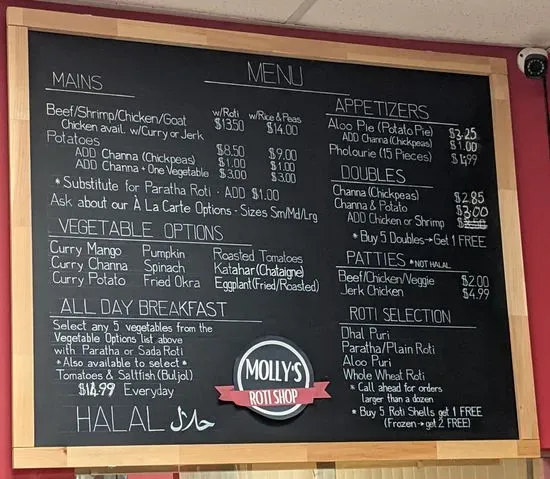 MENU
MAINS
w/Roti w/Rice & Peas
Beef/Shrimp/Chicken/Goat $13.50 $14.00
Chicken avail. w/Curry or Jerk
Potatoes $8.50 $9.00
ADD Channa (Chickpeas) $1.00 $1.00
ADD Channa + One Vegetable $3.00 $3.00
* Substitute for Paratha Roti - ADD $1.00
Ask about our À La Carte Options - Sizes Sm/Md/Lrg
VEGETABLE OPTIONS
Curry Mango Pumpkin Roasted Tomatoes
Curry Channa Spinach Katahar (Chataigne)
Curry Potato Fried Okra Eggplant (Fried/Roasted)
ALL DAY BREAKFAST
Select any 5 vegetables from the
Vegetable Options list above
with Paratha or Sada Roti
*Also available to select*
Tomatoes & Saltfish (Buljol)
$14.99 Everyday
HALAL حلال
MOLLY'S
ROTI SHOP
APPETIZERS
Aloo Pie (Potato Pie) $3.25
ADD Channa (Chickpeas) $1.00
Pholourie (15 Pieces)
DOUBLES
Channa (Chickpeas) $2.85
Channa & Potato $3.00
ADD Chicken or Shrimp
* Buy 5 Doubles → Get 1 FREE
PATTIES *NOT HALAL
Beef/Chicken/Veggie $2.00
Jerk Chicken $4.99
ROTI SELECTION
Dhal Puri
Paratha/Plain Roti
Aloo Puri
Whole Wheat Roti
* Call ahead for orders
larger than a dozen
* Buy 5 Roti Shells get 1 FREE
(Frozen → get 2 FREE)